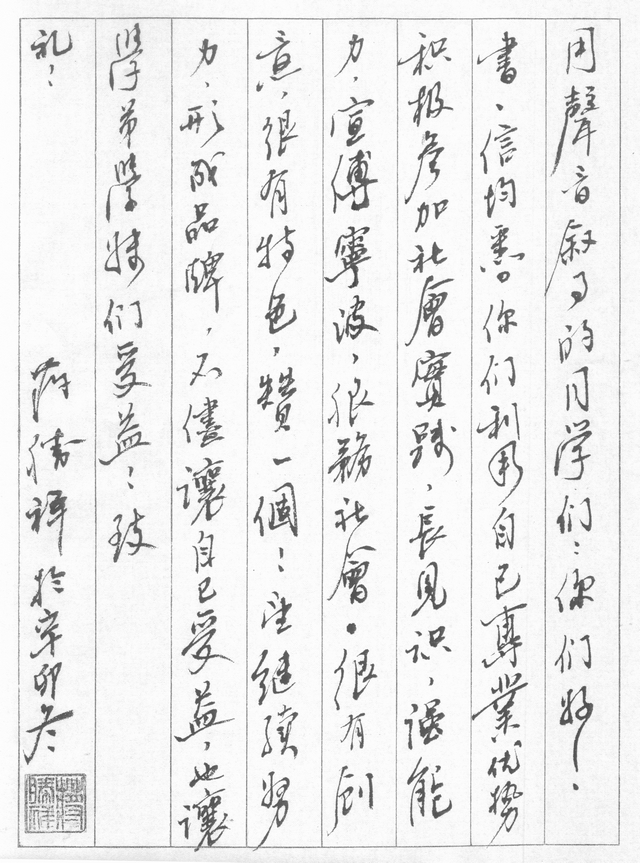 用聲音叙事的同学们：你们好！
書、信均悉。你们利用自己專業优势
积极参加社會實踐，長見识，强能
力，宣傳寧波，服務社會。很有創
意，很有特色，贊一個！望继續努
力，形成品牌，不儘讓自己受益，也讓
學弟學妹们受益！致
礼！
勝祥 於辛卯冬